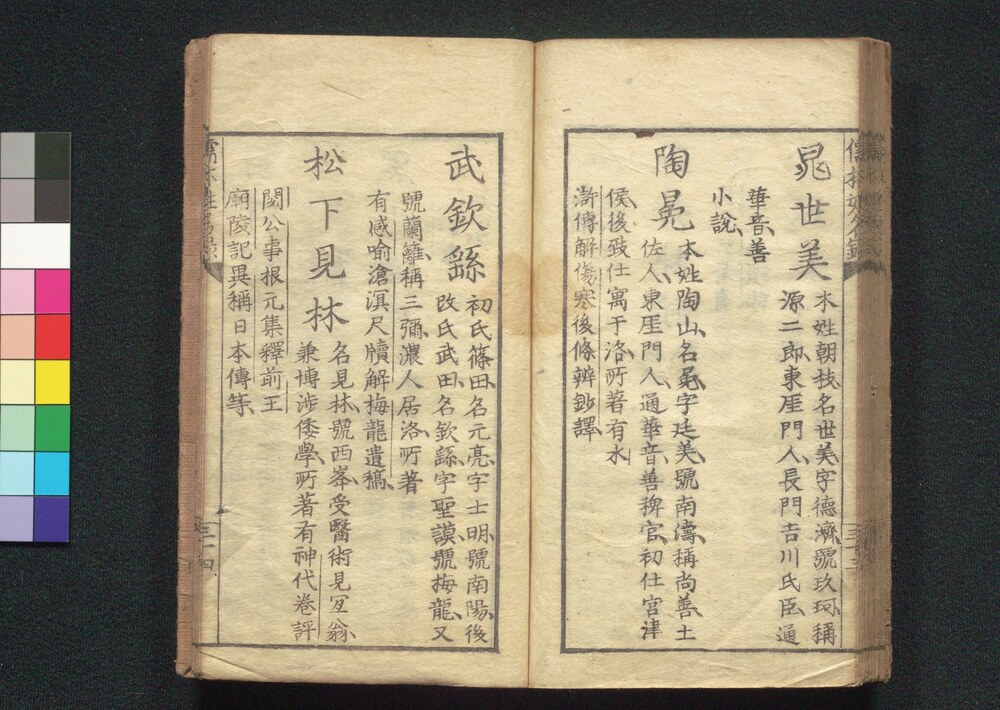 晁世美
本姓朝枝名世美字德濟號玖珂稱
源二郎東厓門人長門吉川氏臣通
華音善
小說
陶冕
本姓陶山名冕字廷美號南濤稱尚善土
佐人東厓門人通華音善稗官初仕宮津
侯後致仕寓于洛所著有水
滸傳解傷寒後條辨鈔譯
三十三
武欽繇
初氏篠田名元亮字士明號南陽後
改氏武田名欽繇字聖謨號梅龍又
號蘭籬稱三彌濃人居洛所著
有感喻滄溟尺牘解梅龍遺稿
松下見林
名見林號西峯受醫術見宜翁
兼博涉倭學所著有神代卷評
閱公事根元集釋前王
廟陵記異稱日本傳等
儒林姓名錄
三十四